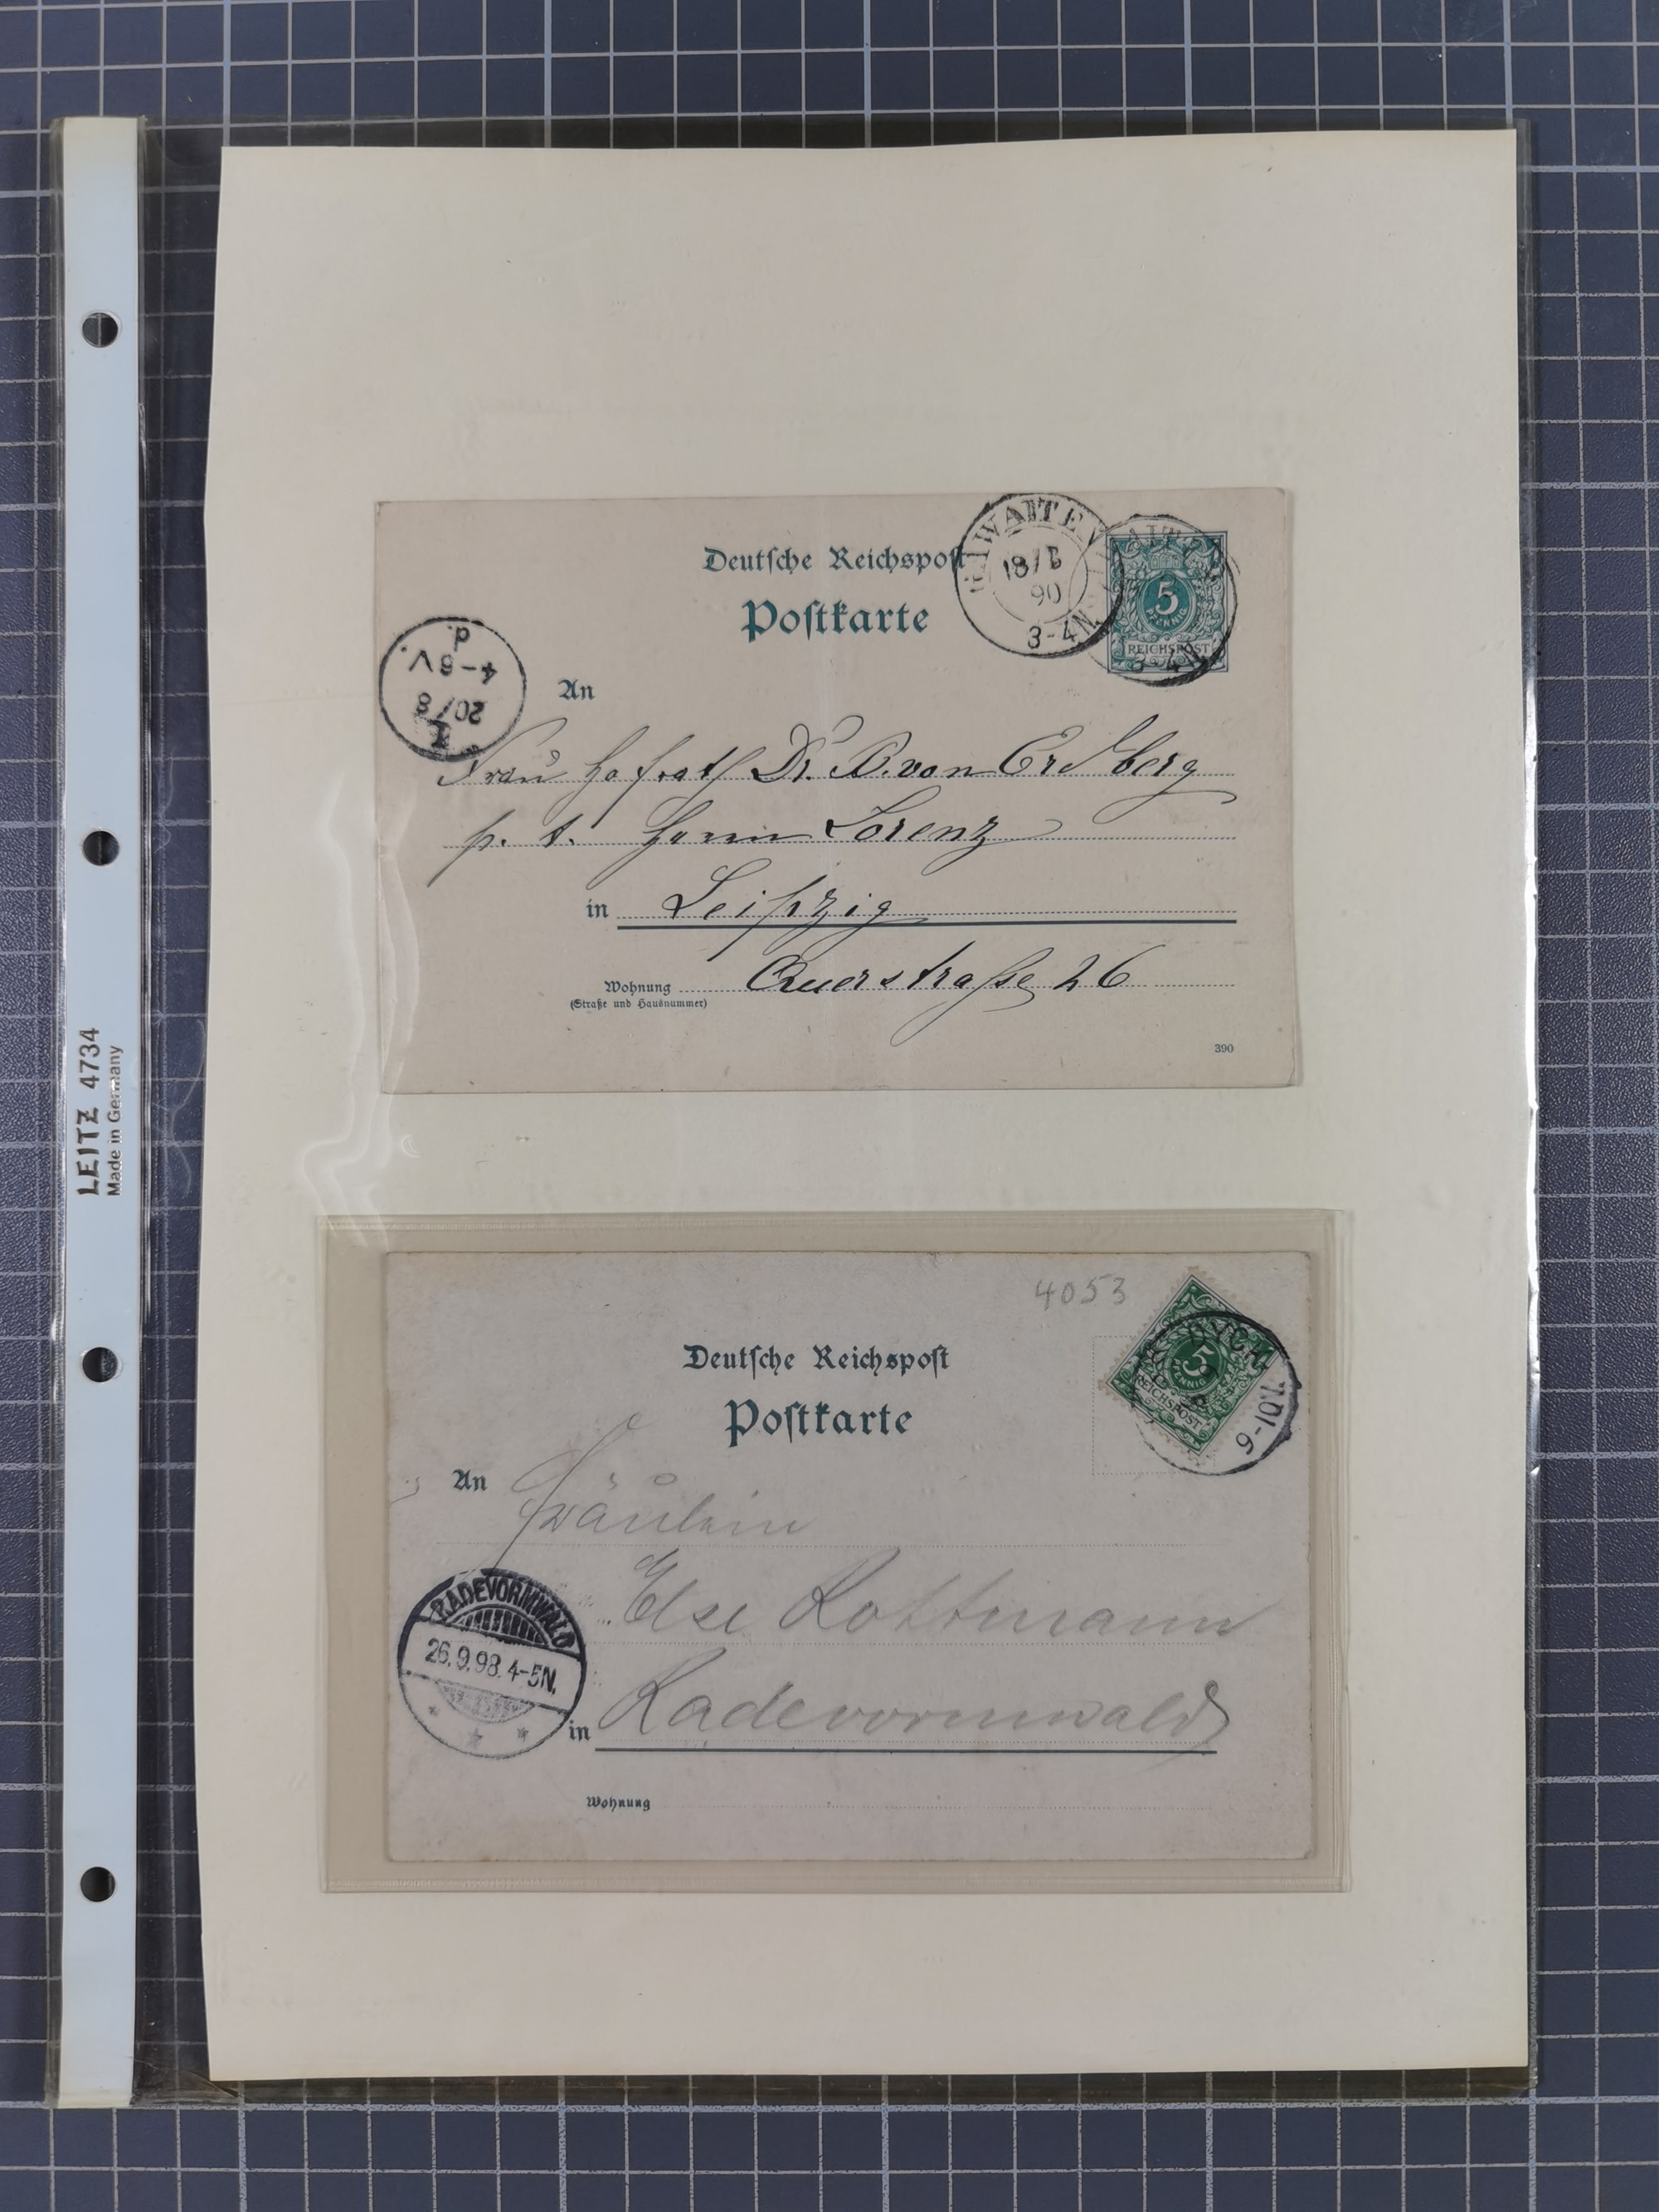 LEITZ 4734
Made in Germany
Deutsche Reichspost
Postkarte
90
3-4N.
5
PFENNIG
REICHSPOST
20/8
4-8V.
d.
An
Frau Hofrath Dr. v. von Erdberg
p. t. Herrn Lorenz
in Leipzig
Querstraße 26
Wohnung
(Straße und Hausnummer)
390
4053
Deutsche Reichspost
Postkarte
5
PFENNIG
REICHSPOST
9-10V.
An Fräulein
Else Rottmann
RADEVORMWALD
26.9.98.4-5N.
in Radevormwald
Wohnung